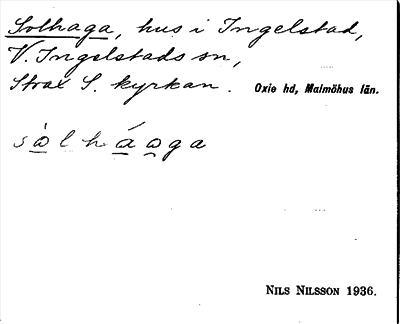 Solhaga, hus i Ingelstad,
V. Ingelstads sn,
Strax S. kyrkan. Oxie hd, Malmöhus län.
sòlháoga
NILS NILSSON 1936.